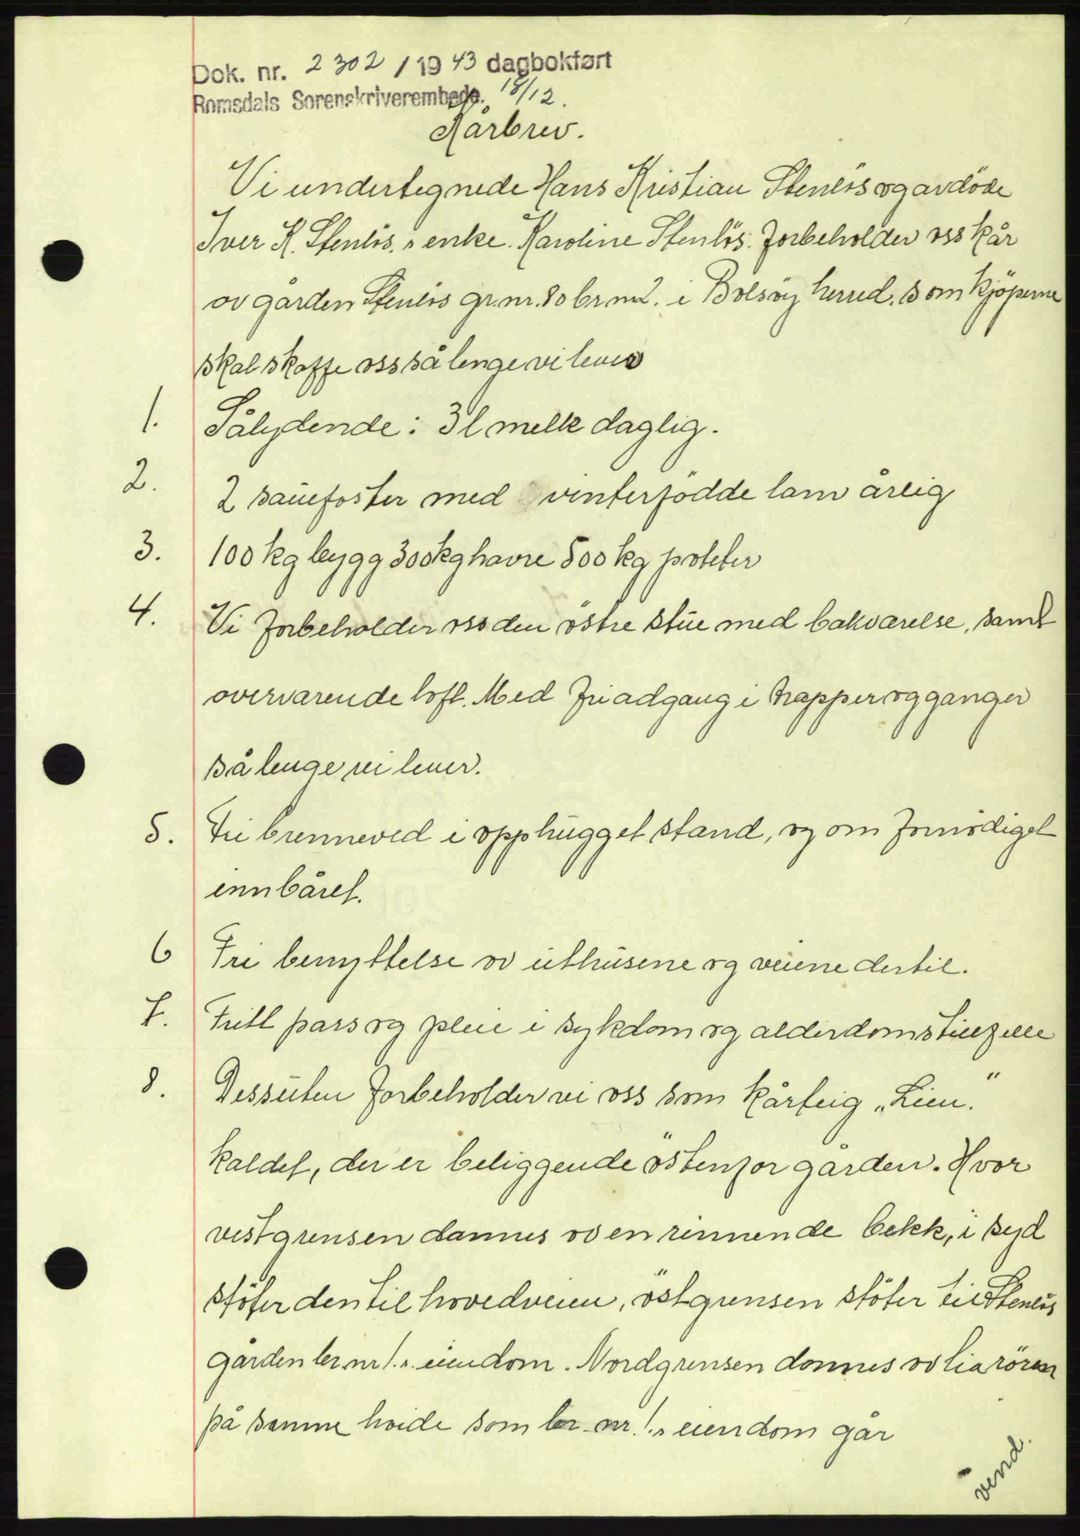 Dok. nr. 2302 / 1943 dagbokført
Romsdals Sorenskriverembede. 18/12.
Kårbrev.
Vi undertegnede Hans Kristian Stenlös og avdöde
Iver K. Stenlös, s enke. Karoline Stenlös. forbeholder oss kår
av gården Stenlös gr.nr. 80 br.nr 2. i Bolsöy herred. som kjöperne
skal skaffe oss så lenge vi lever
1. Sålydende: 3 l melk daglig.
2. 2 sauefoster med vinterfödde lam årlig
3. 100 kg bygg 300 kg havre 500 kg poteter
4. Vi forbeholder oss den östre stue med bakværelse, samt
overværende loft. Med fri adgang i trapper og ganger
så lenge vi lever.
5. Fri brenneved i opphugget stand, og om fornödiget
innbåret.
6 Fri benyttelse av uthusene og veiene dertil.
7. Fritt pass og pleie i sykdom og alderdomstilfelle
8. Dessuten forbeholder vi oss som kårteig „Lien."
kaldet, der er beliggende östenfor gården. Hvor
vestgrensen dannes av en rinnende bekk, i syd
stöter den til hovedveien, östgrensen stöter til Stenlös
gården br.nr 1.s eiendom. Nordgrensen dannes av lia rören
på samme höide som br. nr. 1.s eiendom går
vend.